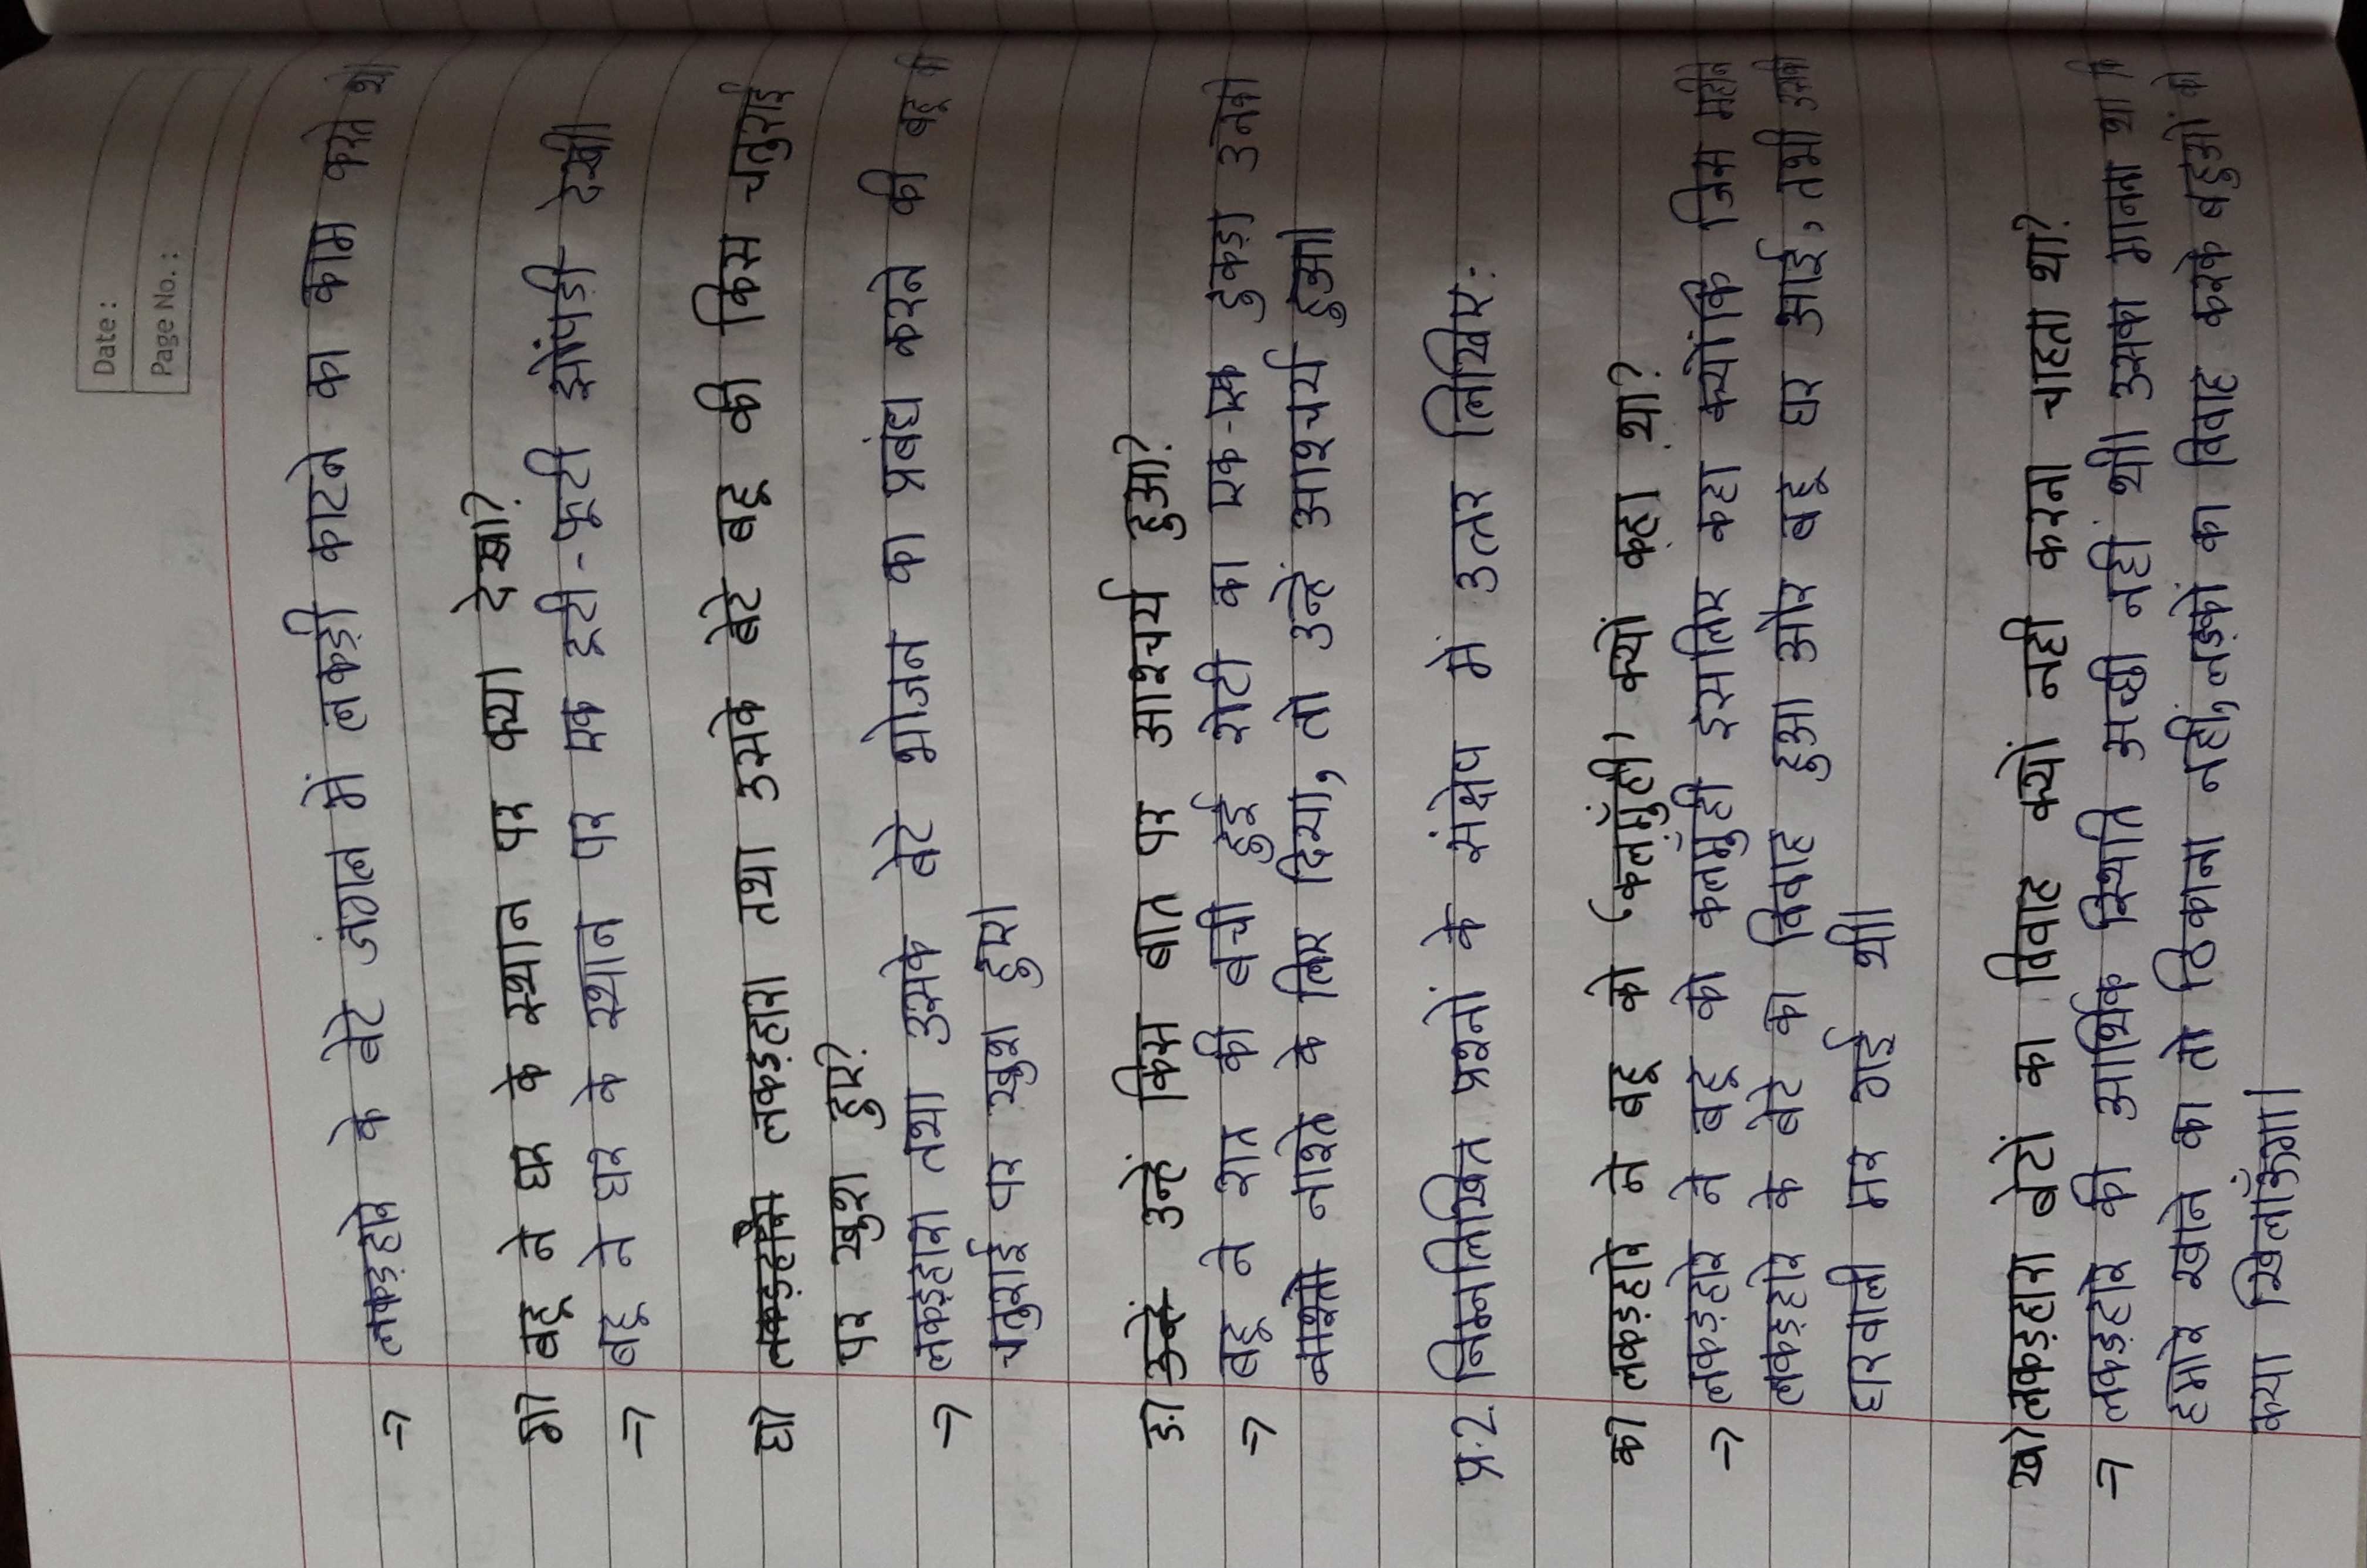 Date :
Page No. :
⇒ लकड़हारे के बेटे जंगल में लकड़ी काटने का काम करते थे।
ग) बहू ने घर के स्थान पर क्या देखा?
⇒ बहू ने घर के स्थान पर एक टूटी-फूटी झोंपड़ी देखी।
घ) लकड़हारा तथा उसके बेटे बहू की किस चतुराई
पर खुश हुए?
⇒ लकड़हारा तथा उसके बेटे भोजन का प्रबंध करने की बहू की
चतुराई पर खुश हुए।
ङ) उन्हें किस बात पर आश्चर्य हुआ?
⇒ बहू ने रात की बची हुई रोटी का एक-एक टुकड़ा उनको
नाश्ते के लिए दिया, तो उन्हें आश्चर्य हुआ।
प्र.2 निम्नलिखित प्रश्नों के संक्षेप में उत्तर लिखिए:
क) लकड़हारे ने बहू को 'कलमुँही' क्यों कहा था?
⇒ लकड़हारे ने बहू को कलमुँही इसलिए कहा क्योंकि जिस महीने
लकड़हारे के बेटे का विवाह हुआ और बहू घर आई, तभी उसकी
घरवाली मर गई थी।
ख) लकड़हारा बेटों का विवाह क्यों नही करना चाहता था?
⇒ लकड़हारे की आर्थिक स्थिति अच्छी नहीं थी। उसका मानना था कि
हमारे खाने का तो ठिकाना नहीं, लड़कों का विवाह करके बहुओं को
क्या खिलाऊँगा।